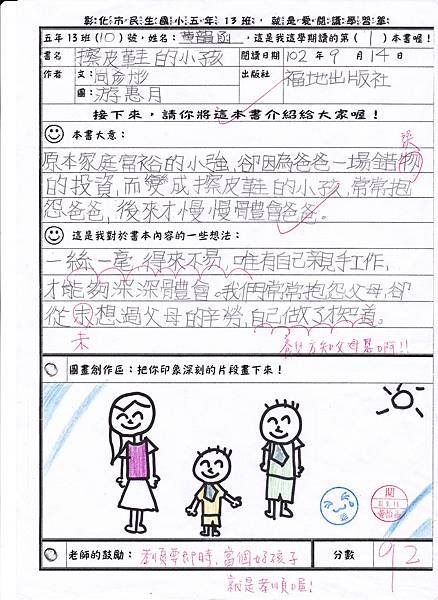 彰化市民生國小五年13班，就是愛閱讀學習單
五年13班(10)號，姓名：黃韻函，這是我這學期讀的第(1)本書喔！
書名 擦皮鞋的小孩 閱讀日期 102年9月14日
作者 文：周彥彣 出版社 福地出版社
圖：游惠月
接下來，請你將這本書介紹給大家喔！
本書大意：
原本家庭富裕的小強，卻因為爸爸一場錯物
誤
的投資，而變成擦皮鞋的小孩，常常抱
怨爸爸，後來才慢慢體會爸爸。
這是我對於書本內容的一些想法：
一絲一毫，得來不易，唯有自己親手工作，
才能夠深深體會。我們常常抱怨父母，卻
從未想過父母的辛勞，自己做了才知道。
未
養兒方知父母恩啊!!
圖畫創作區：把你印象深刻的片段畫下來！
閱
老師的鼓勵：孝順要即時，當個好孩子 分數 92
就是孝順喔！